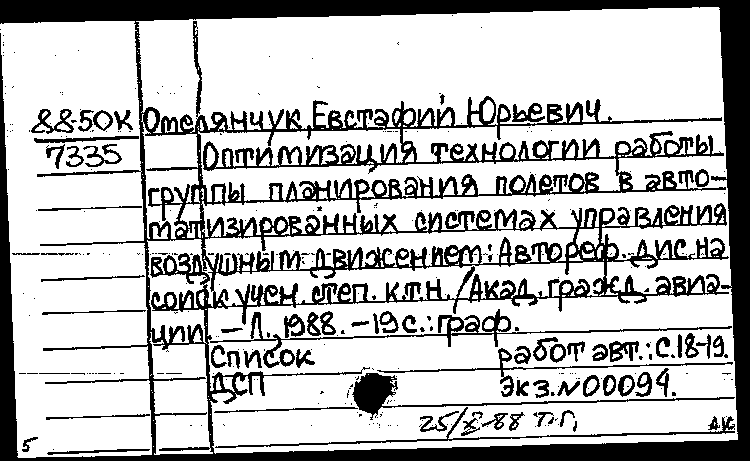 88-50К Омелянчук, Евстафий Юрьевич.
7335 Оптимизация технологии работы
группы планирования полетов в авто-
матизированных системах управления
воздушным движением: Автореф. дис. на
соиск. учен. степ. к.т.н. / Акад. гражд. авиа-
ции. – Л., 1988. – 19 с.: граф.
Список работ авт.: С. 18-19.
ДСП Экз. № 00094.
25/X-88
5